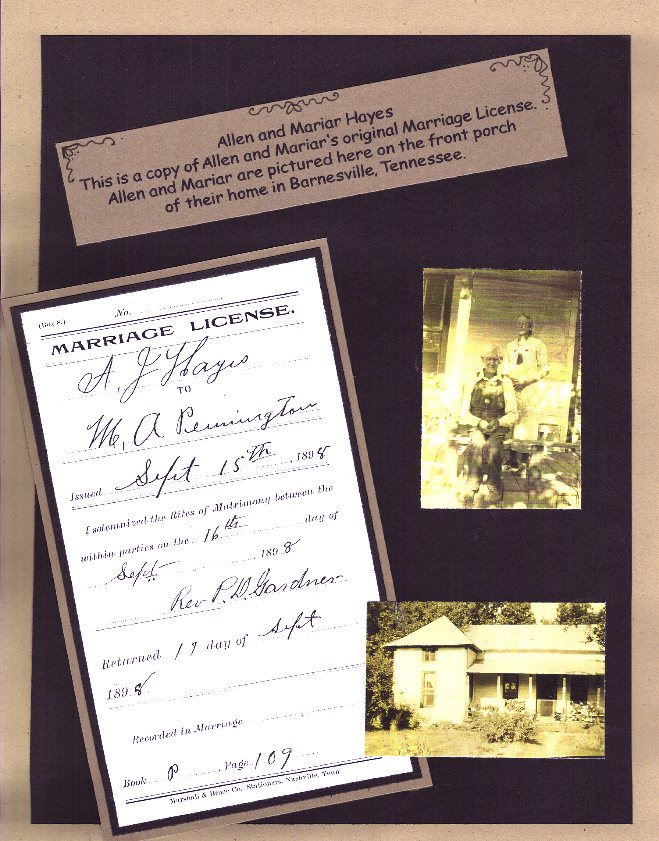 Allen and Mariar Hayes
This is a copy of Allen and Mariar's original Marriage License.
Allen and Mariar are pictured here on the front porch
of their home in Barnesville, Tennessee.
No.
MARRIAGE LICENSE.
A. J Hayes
TO
M, A Pennington
Issued Sept 15th 1898
I solemnized the Rites of Matrimony between the
within parties on the 16th day of
Sept 1898
Rev P. D. Gardner
Returned 17 day of Sept
1898
Recorded in Marriage
Book P Page 109
Marshall & Bruce Co., Stationers, Nashville, Tenn